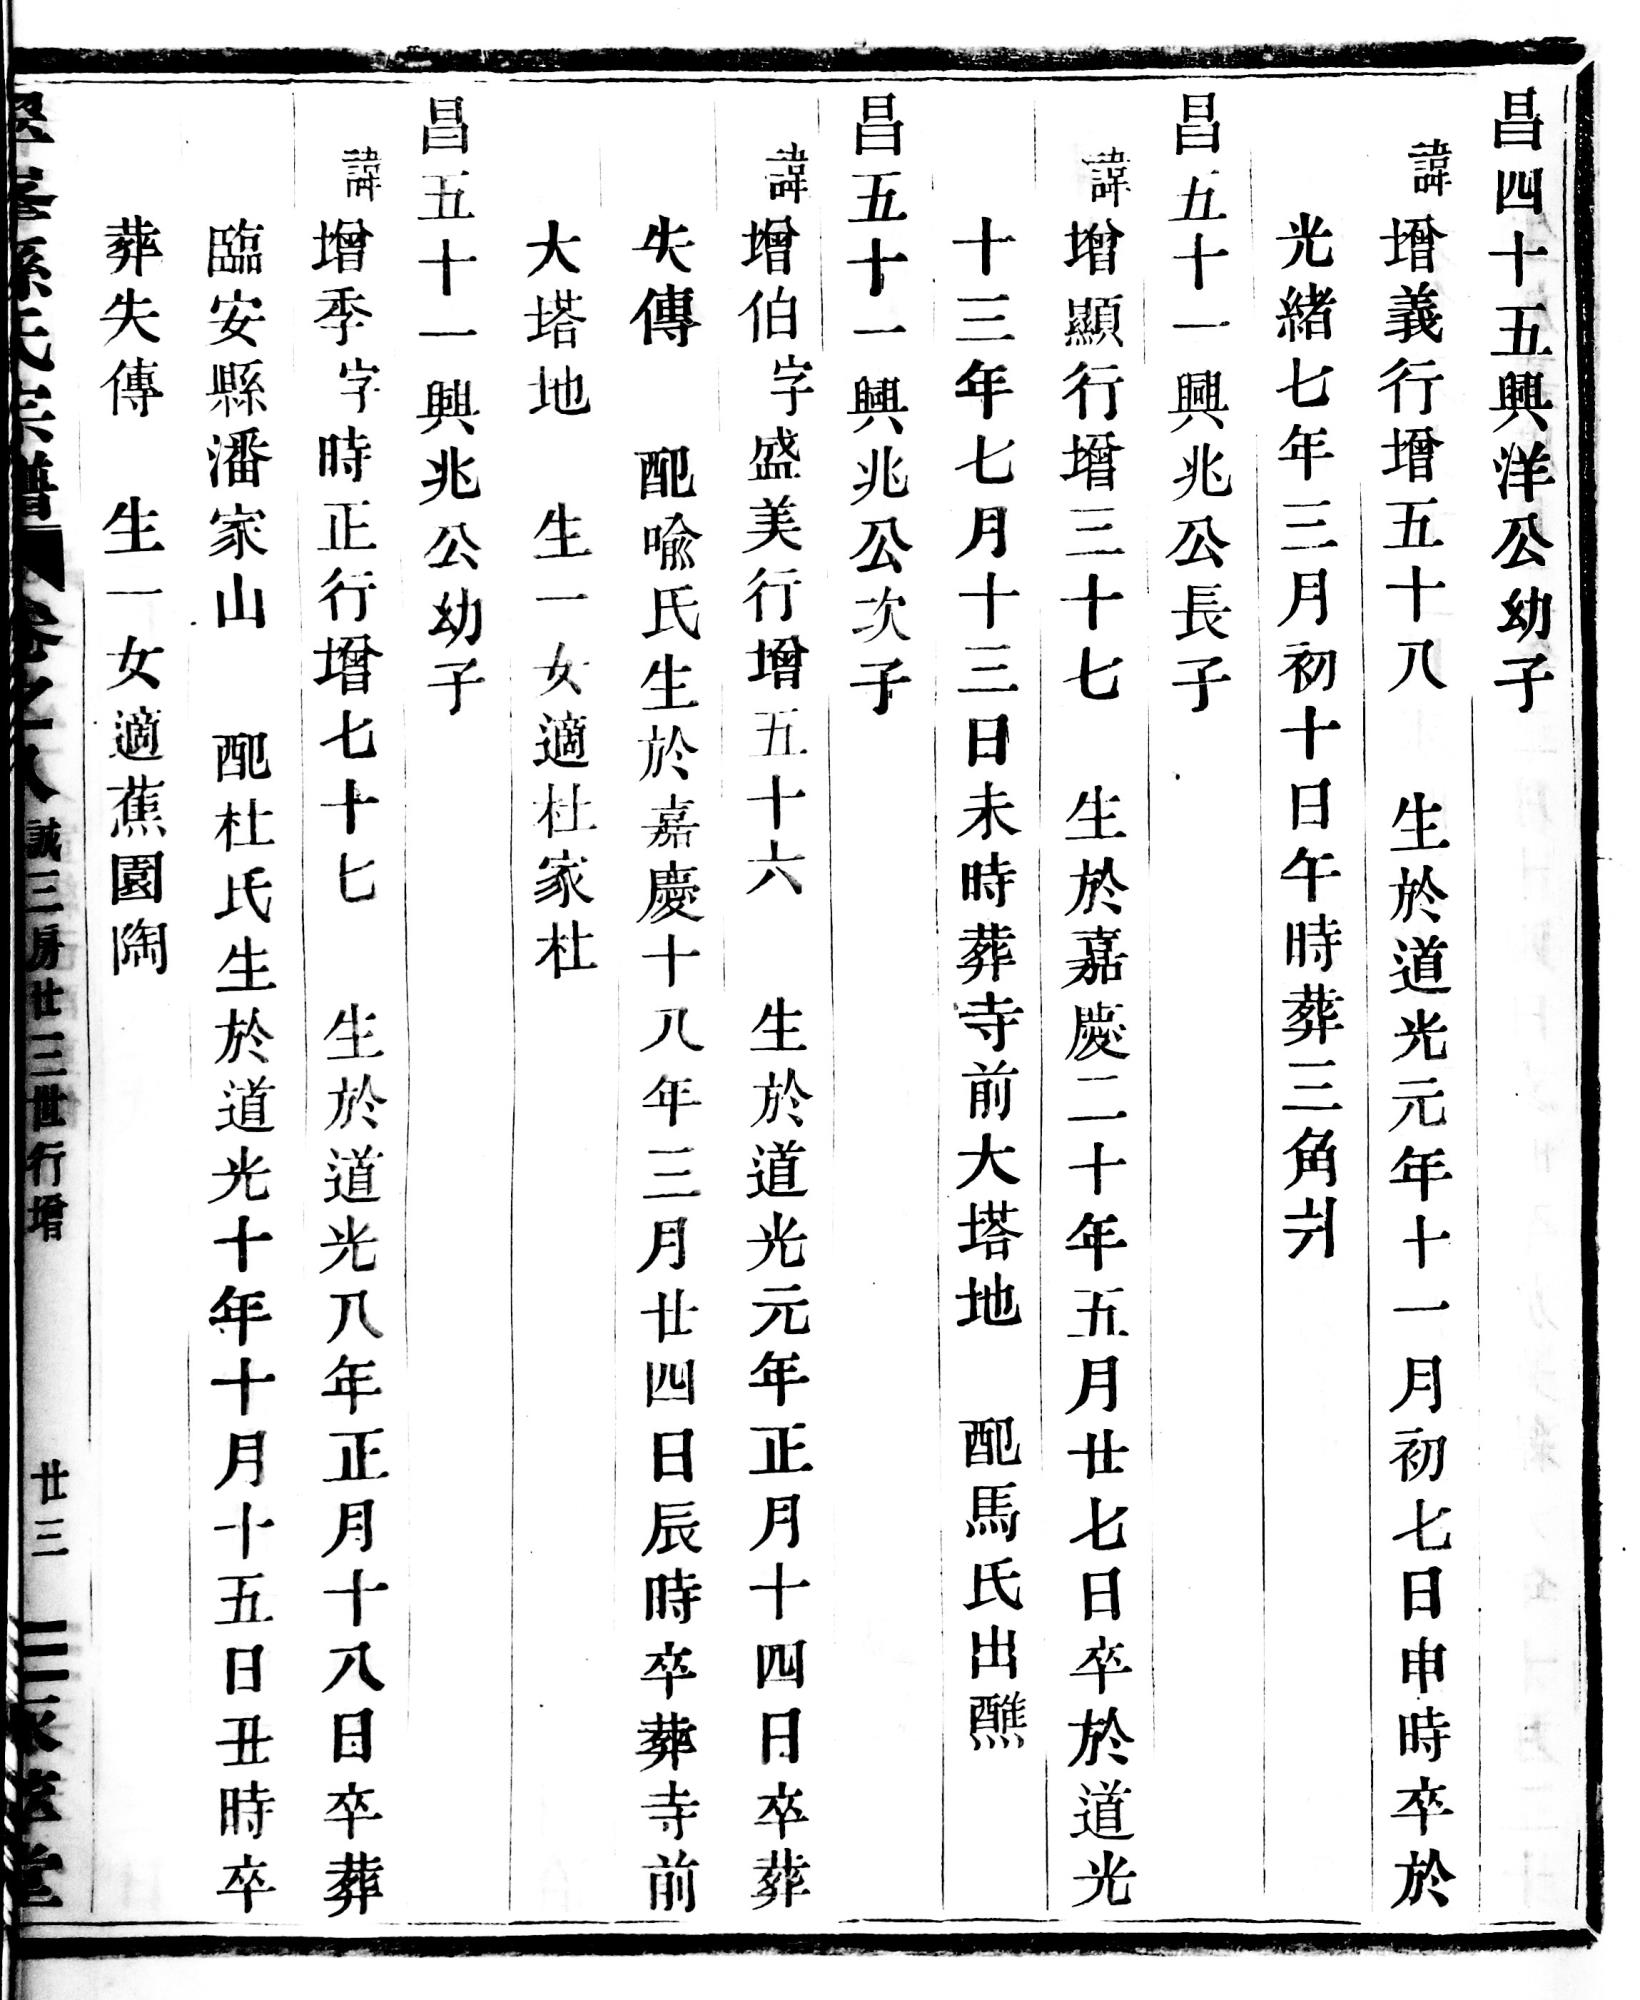 昌四十五興洋公幼子
諱增義行增五十八 生於道光元年十一月初七日申時卒於
光緒七年三月初十日午時葬三角爿
昌五十一興兆公長子
諱增顯行增三十七 生於嘉慶二十年五月廿七日卒於道光
十三年七月十三日未時葬寺前大塔地 配馬氏出醮
昌五十一興兆公次子
諱增伯字盛美行增五十六 生於道光元年正月十四日卒葬
失傳 配喩氏生於嘉慶十八年三月廿四日辰時卒葬寺前
大塔地 生一女適杜家杜
昌五十一興兆公幼子
諱增季字時正行增七十七 生於道光八年正月十八日卒葬
臨安縣潘家山 配杜氏生於道光十年十月十五日丑時卒
葬失傳 生一女適蕉園陶
孫氏宗譜 卷之八 誠三房廿三世行增 廿三 堂